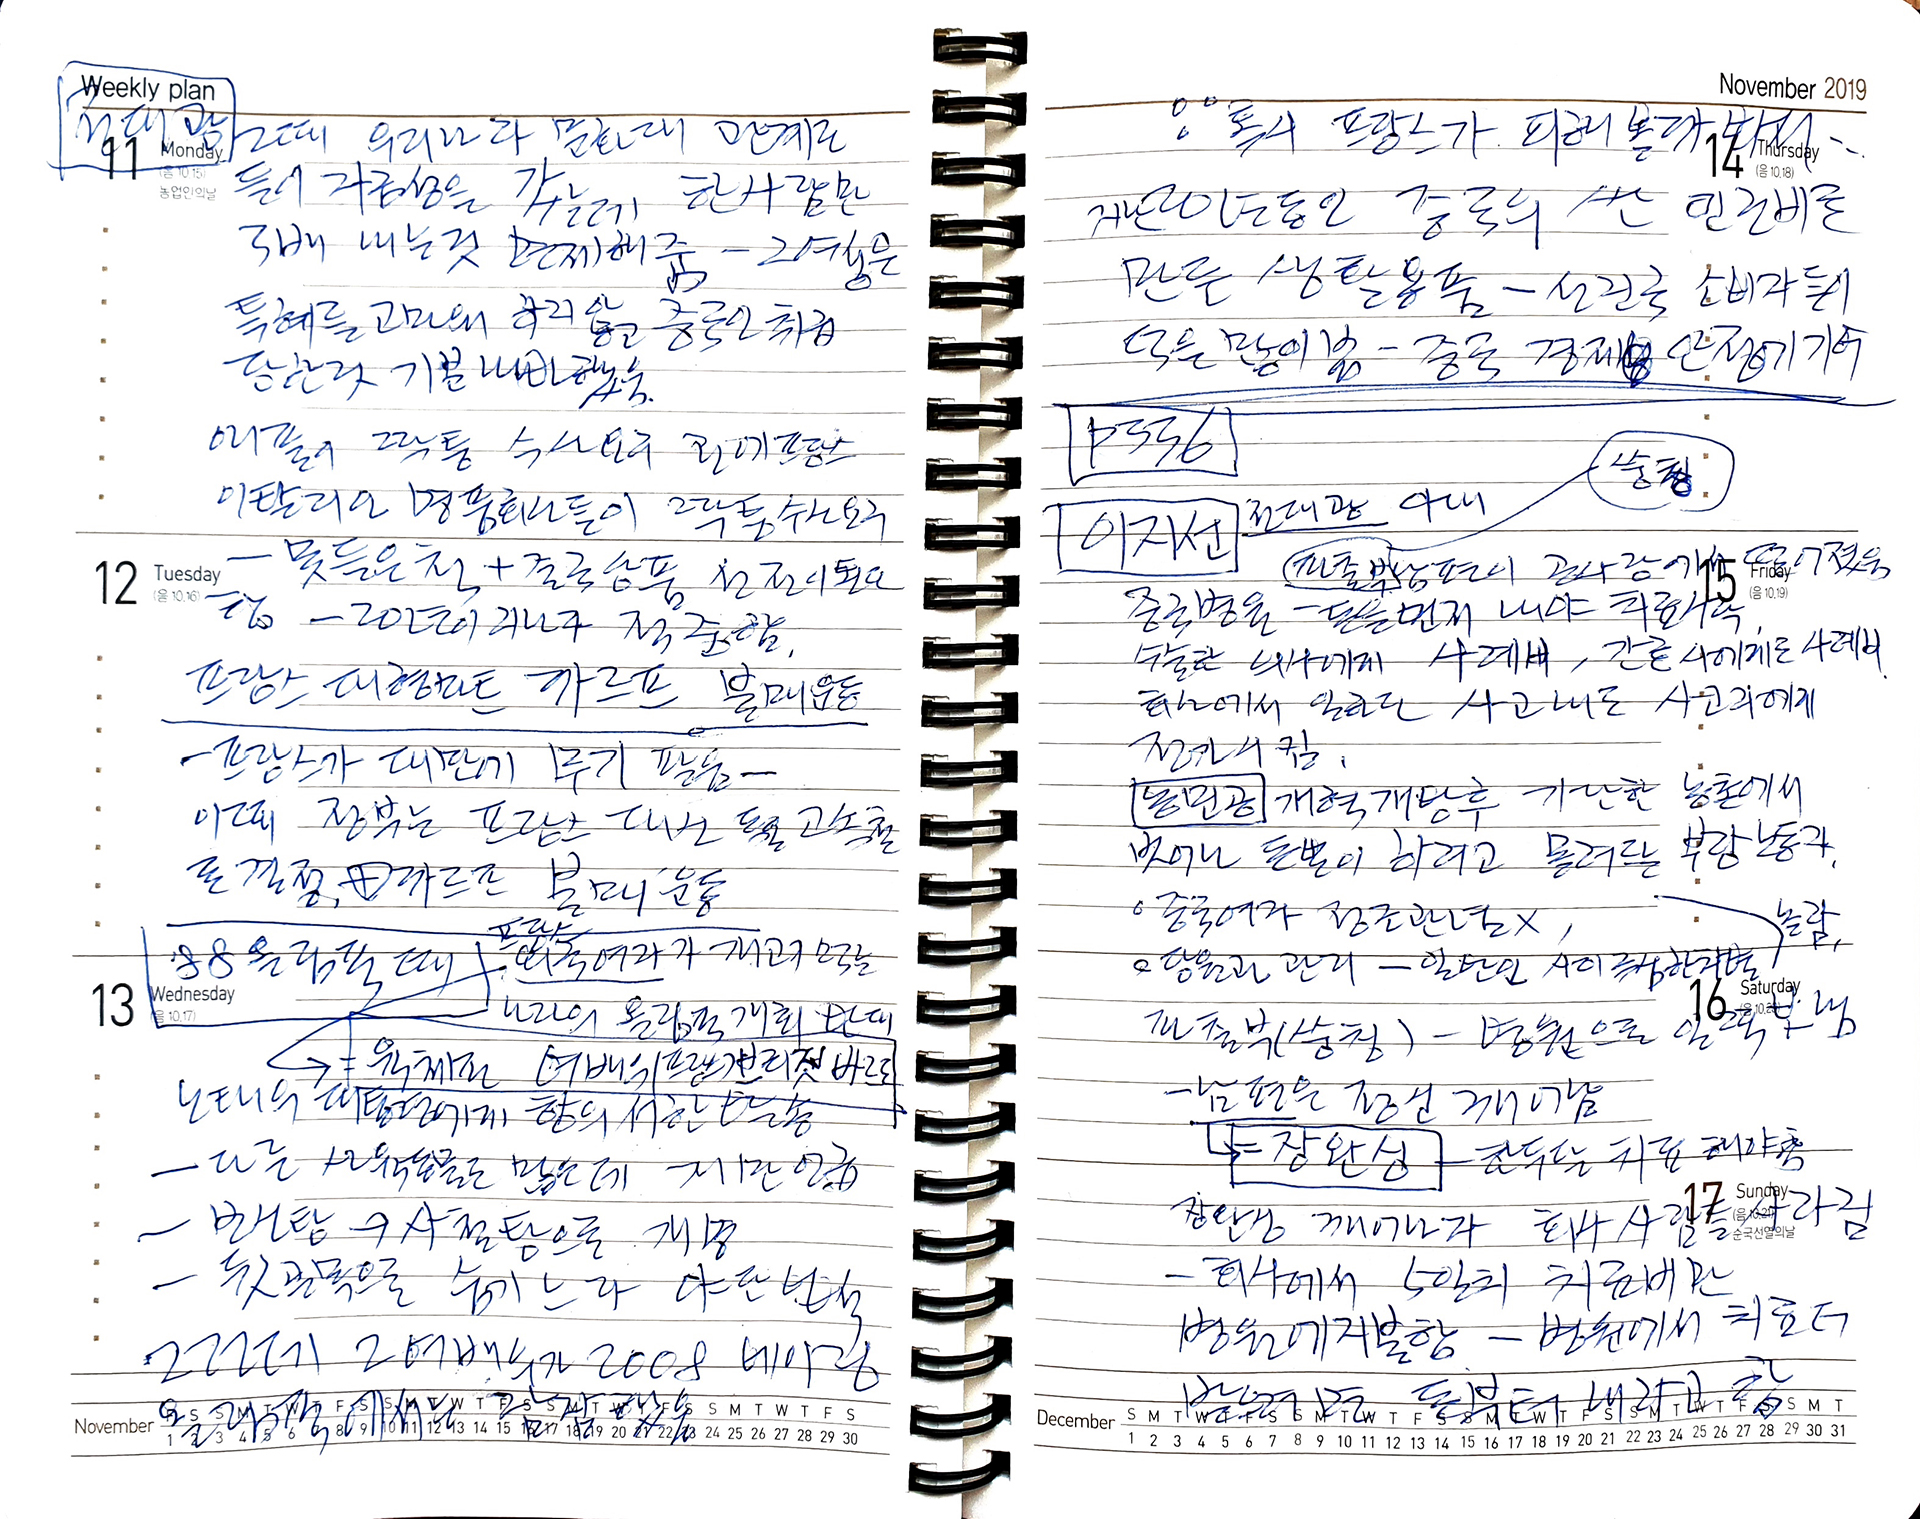 Weekly plan
전대광
11 Monday
(음 10.15)
농업인의날
그때 우리나라 문화대 관계도
들이 자긍심을 갖는데 한사람만
5배 내는것 면제해줌 -
특혜를 고마워 하지 않고 중국인 취급
당한것 기분 나빠 했음.
어피들이 짝퉁 수사요구
이탈리아 명품회사들이 짝퉁수사요구
12 Tuesday
(음 10.16)
- 못들은척 + 결국 상품 선전이 된다
함 - 20년이 지나자 적중함.
프랑스 대형마트 까르프 불매운동
- 프랑스가 대만에 무기 팔음 -
이때 정부는 프랑스 대신 독일 고속철
로 결정, 까르프 불매운동
88올림픽 때
프랑스
외국여자가 개고기 먹는
13 Wednesday
(음 10.17)
나라의 올림픽개최 반대
= 육체파 여배우(프랑스 브리짓 바르도
노태우 대통령에게 항의 서한 발송
- 다른 동물도 많은데 개만 언급
- 보신탕 → 사철탕으로 개명
- 뒷골목으로 숨기느라 야단 법석
그 여배우가 2008 베이징
올림픽에서는 잠잠 했음
November S S M T W T F S S M T W T F S S M T W T F S S M T W T F S
1 2 3 4 5 6 7 8 9 10 11 12 13 14 15 16 17 18 19 20 21 22 23 24 25 26 27 28 29 30
November 2019
혹시 프랑스가 피해 볼까 봐서...
14 Thursday
(음 10.18)
지난 20년동안 중국의 싼 인건비로
만든 생활용품 - 선진국 소비자들이
덕을 많이 봄 - 중국 경제 안정에 기여
P556
승청
이지선 전대광 아내
파출부 남편이 공사장에서 떨어졌음
15 Friday
(음 10.19)
중국병원 - 돈을 먼저 내야 치료시작,
수술한 의사에게 사례비, 간호사에게도 사례비.
회사에서 일하다 사고나도 사고자에게
전가시킴.
농민공 개혁개방후 가난한 농촌에서
벗어나 돈벌이 하려고 몰려드는 부랑노동자.
◦ 중국여자 정조관념 X,
놀람,
◦ 당원과 관리 - 일반인 사이 극심한 차별
16 Saturday
(음 10.20)
파출부(승청) - 병원으로 일찍 보냄
- 남편은 정신 깨어남
= 장완싱 - 한두달 치료 해야함
17 Sunday
(음 10.21)
순국선열의날
장완싱 깨어나자 회사사람들 사라짐
- 회사에서 5일치 치료비만
병원에 지불함 - 병원에서 치료 더
받으려면 돈부터 내라고 함
December S M T W T F S S M T W T F S S M T W T F S S M T W T F S S M T
1 2 3 4 5 6 7 8 9 10 11 12 13 14 15 16 17 18 19 20 21 22 23 24 25 26 27 28 29 30 31